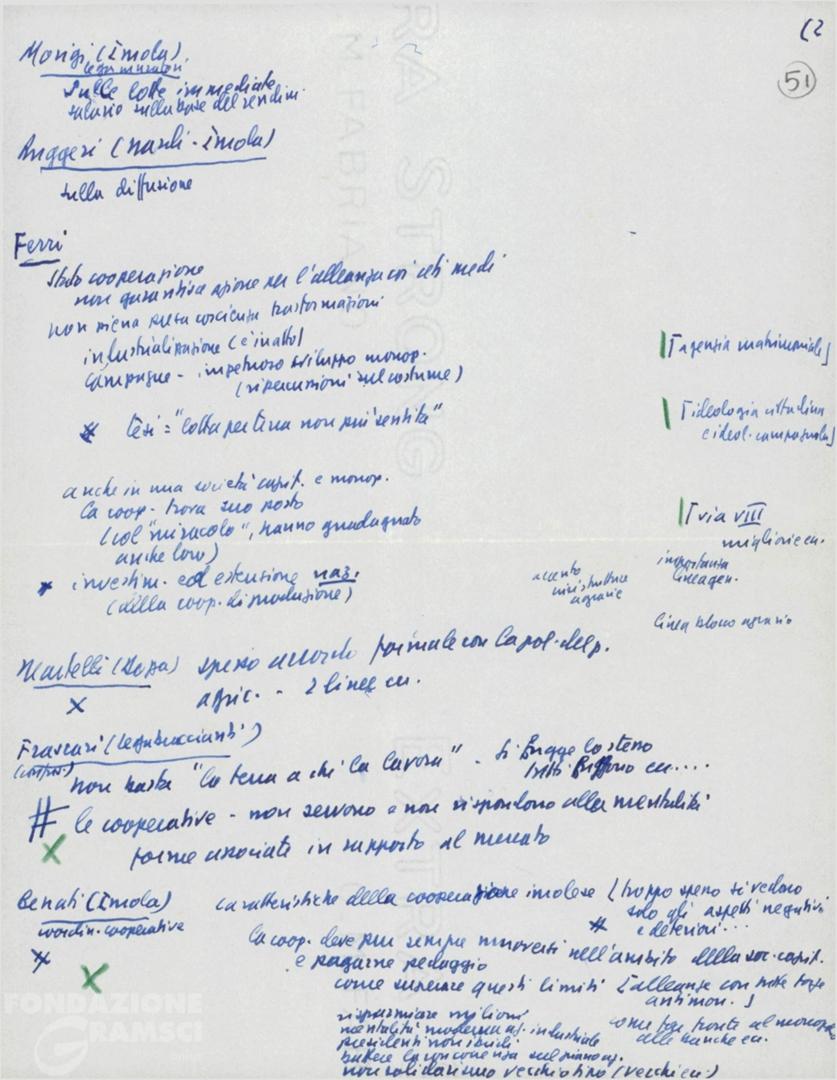 (2
51
Morigi (Imola)
lega muratori
sulle lotte immediate
salario sulla base del rendim.
Ruggeri (Imola)
sulla diffusione
Ferri
cooperazione
non garantiva azione per l'alleanza coi ceti medi
non piena presa coscienza trasformazioni
industrializzazione (è in atto)
campagne - impetuoso sviluppo monop.
(ripercussioni sul costume)
[agenzia matrimoniale]
# tesi = "lotta per terra non più sentita"
[ideologia cittadina
e ideol. campagnola]
anche in una società capit. e monop.
la coop. trova suo posto
(col "miracolo", hanno guadagnato
anche loro)
[via VIII
migliorie ecc.
x investim. ed estensione naz.
(della coop. di produzione)
accento
agrarie
importanza
linea gen.
linea blocco agrario
Martelli ( ) spesso accordo formale con la pol. del p.
x
agric. - 2 linee ecc.
Frascari (lega braccianti)
non basta "la terra a chi la lavora" - si fugge lo stesso
tutti fuggono ecc....
# le cooperative - non servono e non rispondono alla mentalità
x
forme associate in rapporto al mercato
Benati (Imola)
coordin. cooperative
caratteristiche della cooperazione imolese (troppo spesso si vedono
solo gli aspetti negativi
e deteriori...
#
la coop. deve pur sempre muoversi nell'ambito della soc. capit.
e pagarne pedaggio
x
come superare questi limiti [alleanze con tutte forze
antimon.]
risparmiare milioni
mentalità moderna industriale
come far fronte al monopolio
alle banche ecc.
presidenti non
battere la concorrenza sul piano
non solidarismo vecchio tipo (vecchi ecc.)
FONDAZIONE
GRAMSCI
EXTRA STRONG
M. FABRIANO
EXTRA